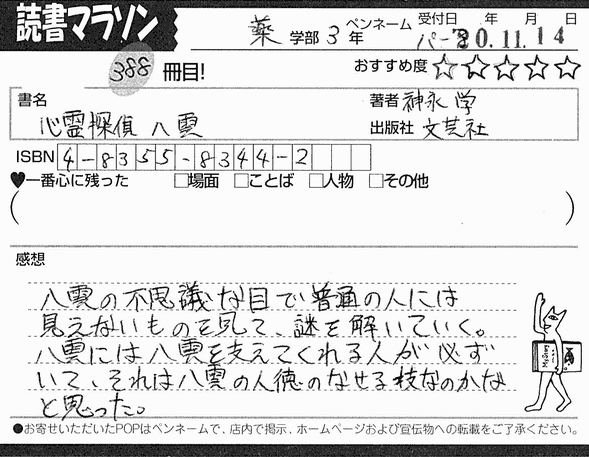 読書マラソン
薬 学部 3 年 ペンネーム パーラ 受付日 年 月 日
20.11.14
388 冊目! おすすめ度 ☆☆☆☆☆
書名 心霊探偵 八雲
著者 神永 学
出版社 文芸社
ISBN 4-8355-8344-2
♥一番心に残った □場面 □ことば □人物 □その他
( )
感想
八雲の不思議な目で普通の人には
見えないものを見て、謎を解いていく。
八雲には八雲を支えてくれる人が必ず
いて、それは八雲の人徳のなせる技なのかな
と思った。
●お寄せいただいたPOPはペンネームで、店内で掲示、ホームページおよび宣伝物への転載をご了承ください。